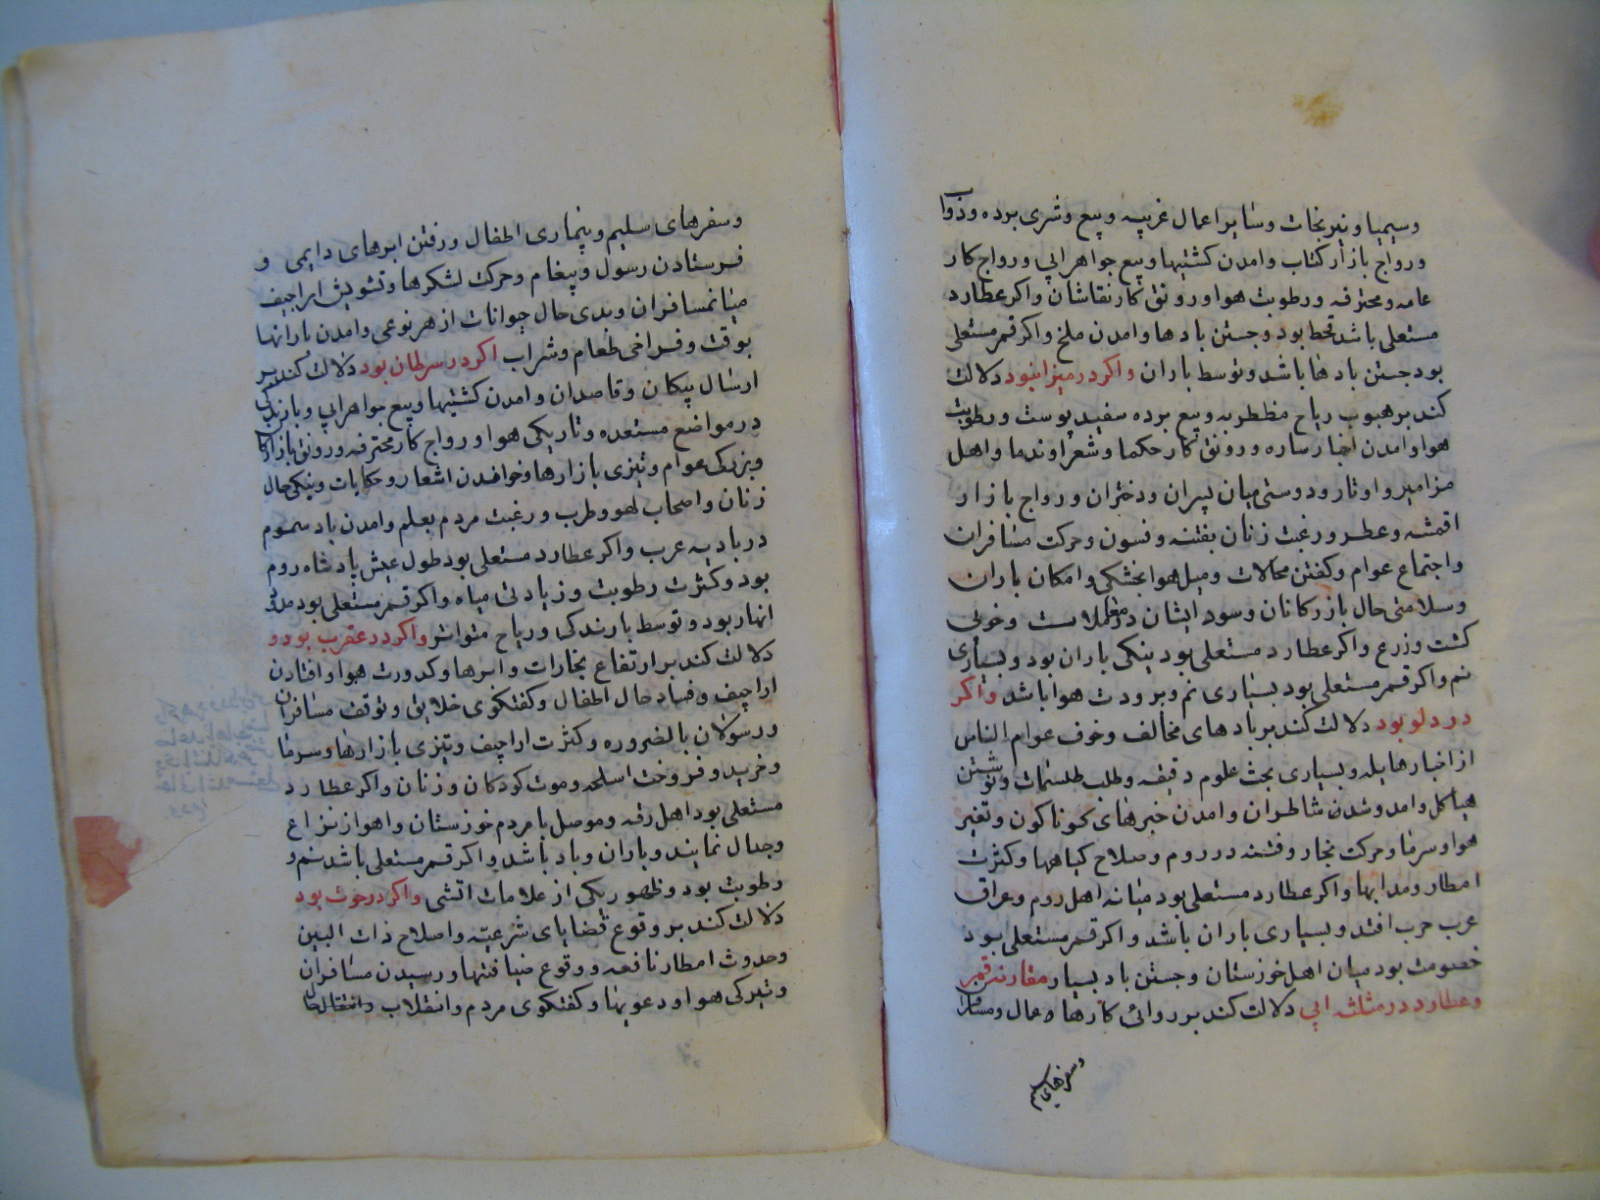 وسیمیا و نیرنجات و سایر اعمال غریبه و بیع و شری برده و دواب
و رواج بازار کتاب و امدن کشتیها و بیع جواهر ابی و رواج کار
عامه و محترفه و رطوبت هوا و رونق کار نقاشان و اکر عطارد
مستعلی باشد قحط بود و جستن بادها و امدن ملخ و اکر قمر مستعلی
بود جستن بادها باشد و توسط باران و اکر در میزان بود دلالت
کند بر هبوب ریاح مظطربه و بیع برده سفید پوست و رطوبت
هوا و امدن اخبار ساره و رونق کار حکما و شعرا و ندما و اهل
مزامیر و اوتار و دوستی میان پسران و دختران و رواج بازار
اقمشه و عطر و رغبت زنان بفتنه و فسون و حرکت مسافران
و اجتماع عوام و کفتن محالات و میل هوا بخشکی و امکان باران
و سلامتی حال بازرکانان و سود ایشان در معاملات و خوبی
کشت و زرع و اکر عطارد مستعلی بود نیکی باران بود و بسیاری
نم و اکر قمر مستعلی بود بسیاری نم و برودت هوا باشد و اکر
در دلو بود دلالت کند بر بادهای مخالف و خوف عوام الناس
از اخبار هایله و بسیاری بحث علوم دقیقه و طلب طلسمات و نوشتن
هیاکل و امد و شدن شاطران و امدن خبرهای کوناکون و تغیر
هوا و سرما و حرکت تجار و فتنه در روم و صلاح کیاهها و کثرت
امطار و مدابها و اکر عطارد مستعلی بود میانه اهل روم و عراق
عرب حرب افتد و بسیاری باران باشد و اکر قمر مستعلی بود
خصومت بود میان اهل خوزستان و جستن باد بسیار مقارنه قمر
و عطارد در مثلثه ابی دلالت کند بر روائی کارها عمال و
وسفرهای سلیم
وسفرهای سلیم و بیماری اطفال و رفتن ابرهای دایمی و
فرستادن رسول و پیغام و حرکت لشکرها و تشویش اراجیف
میانمسافران و بدی حال حیوانات از هر نوعی و امدن بارانها
بوقت و فراخی طعام و شراب اکر در سرطان بود دلالت کند بر
ارسال پیکان و قاصدان و امدن کشتیها و بیع جواهر ابی و بارندکی
در مواضع مستعده و تاریکی هوا و رواج کار محترفه و رونق بازارها
و بزرکی عوام و تیزی بازارها و خواندن اشعار و حکایات و نیکی حال
زنان و اصحاب لهو و طرب و رغبت مردم بعلم و امدن باد سموم
در بادیه عرب و اکر عطارد مستعلی بود طول عیش پادشاه روم
بود و کثرت رطوبت و زیادتی میاه و اکر قمر مستعلی بود مد
انهار بود و توسط بارندکی و ریاح متواتر و اکر در عقرب بود و
دلالت کند بر ارتفاع بخارات و ابرها و کدورت هوا و افتادن
اراجیف و فساد حال اطفال و کفتکوی خلایق و توقف مسافران
و رسولان بالضروره و کثرت اراجیف و تیزی بازارها و سرما
و خرید و فروخت اسلحه و موت کودکان و زنان و اکر عطارد
مستعلی بود اهل رقه و موصل با مردم خوزستان و اهواز نزاع
و جدال نمایند و باران و باد باشد و اکر قمر مستعلی باشد نم و
رطوبت بود و ظهور یکی از علامات اتشی و اکر در حوت بود
دلالت کند بر وقوع قضایای شرعیه و اصلاح ذات البین
و حدوث امطار نافعه و وقوع ضیافتها و رسیدن مسافران
و تیرکی هوا و دعویها و کفتکوی مردم و انقلاب و انتقال